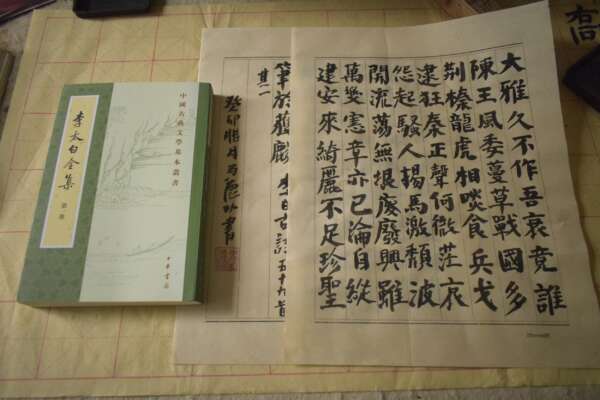 大雅久不作吾衰竟誰
陳王風委蔓草戰國多
荊榛龍虎相啖食兵戈
逮狂秦正聲何微茫哀
怨起騷人揚馬激頹波
開流蕩無垠廢廢興雖
萬變憲章亦已淪自從
建安來綺麗不足珍聖
筆於獲麟 李白古詩五十九首
其一
癸卯臘月
中國古典文學基本叢書
李太白全集
中華書局